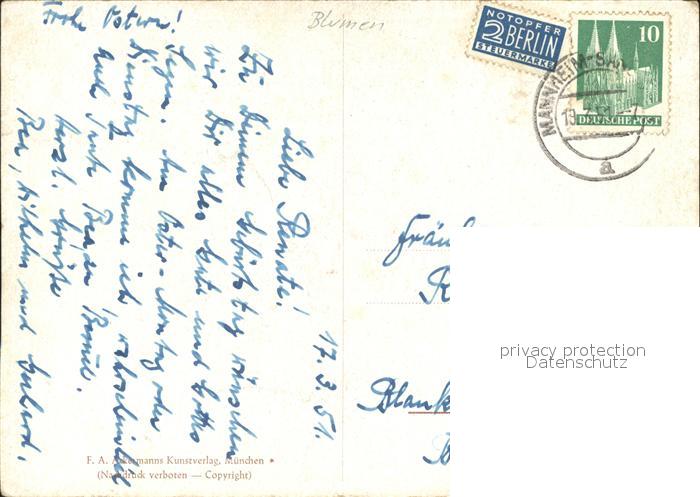 Frohe Ostern!
Blumen
NOTOPFER
2 BERLIN
STEUERMARKE
10
DEUTSCHE POST
MANNHEIM-
a
17. 3. 51.
Liebe Renate!
Zu Deinem Geburtstag wünschen
wir Dir alles Gute und Gottes
Segen. Am Oster-Montag oder
Dienstag komme ich wahrscheinlich
auf
herzl. Grüße
Wilhelm und
Fräul
R
Blank
privacy protection
Datenschutz
F. A. Ackermanns Kunstverlag, München
(Nachdruck verboten — Copyright)